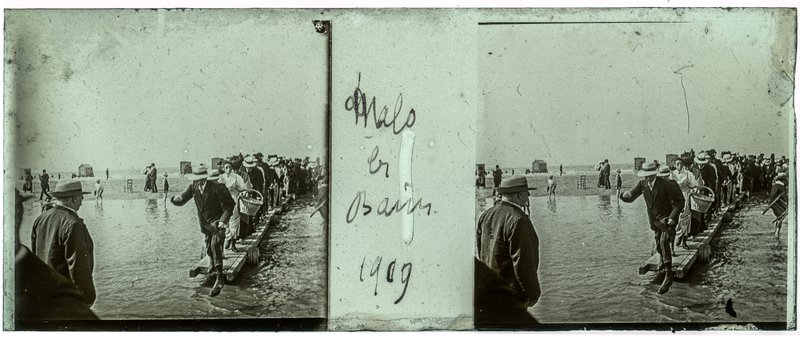 Malo
les
Bains
1909